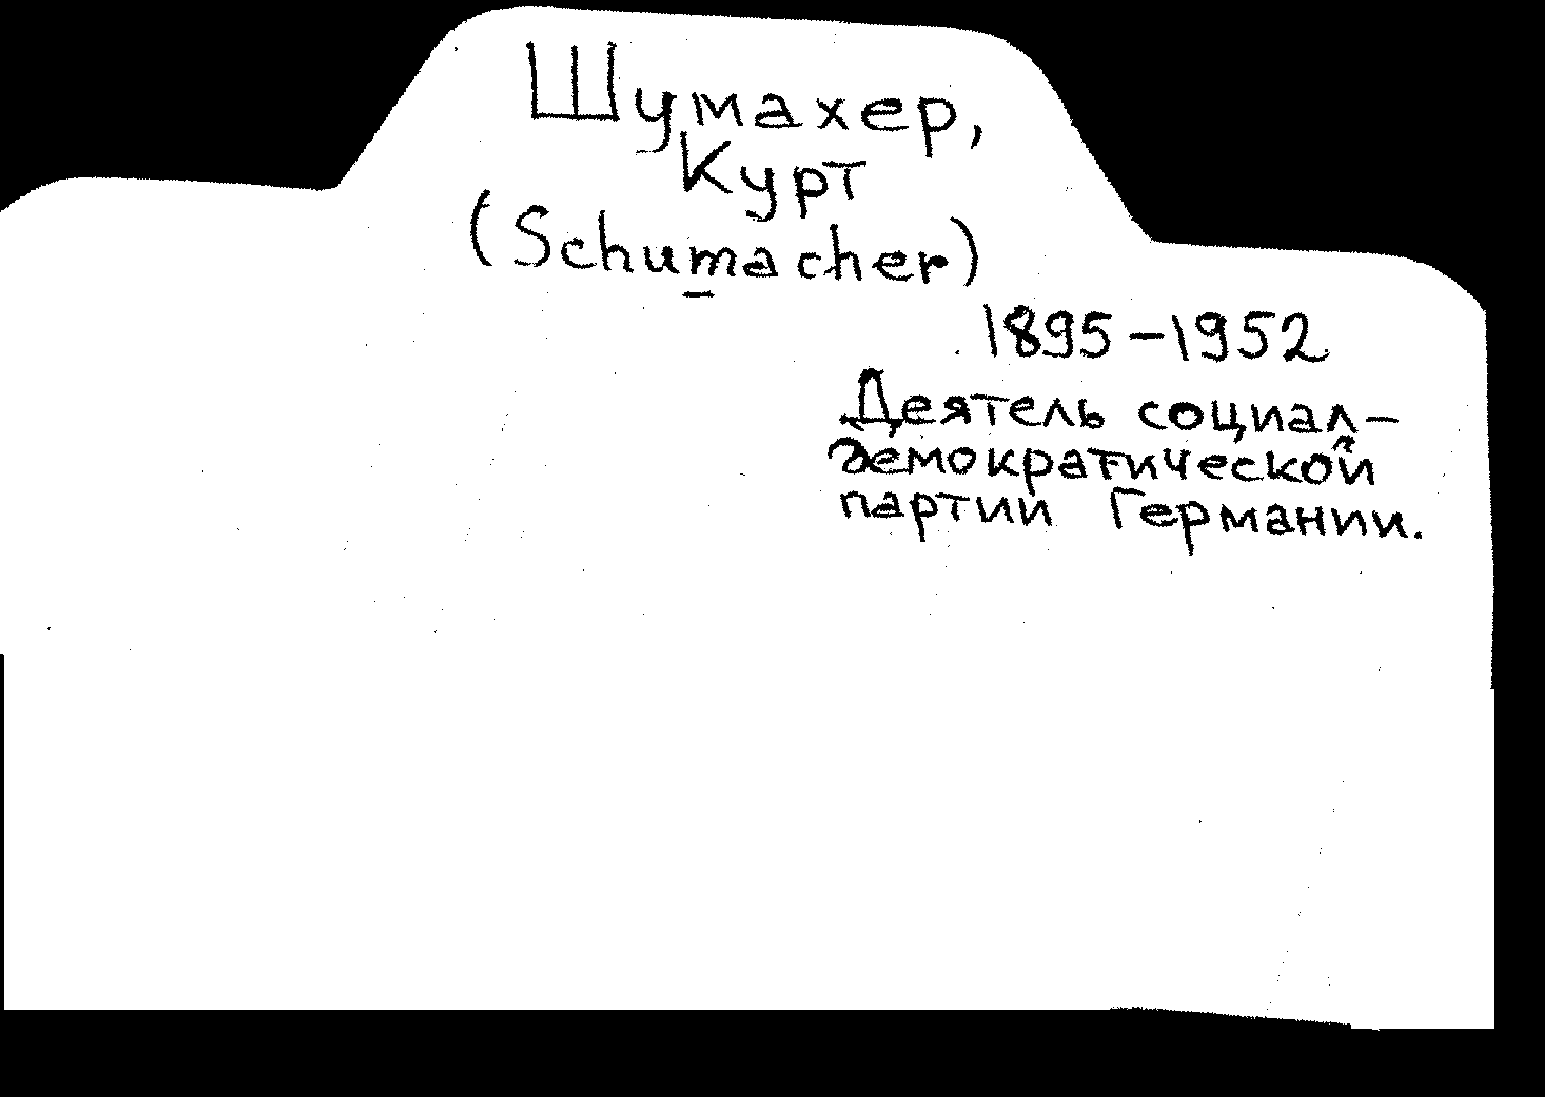 Шумахер,
Курт
(Schumacher)
1895-1952
Деятель социал-
демократической
партии Германии.